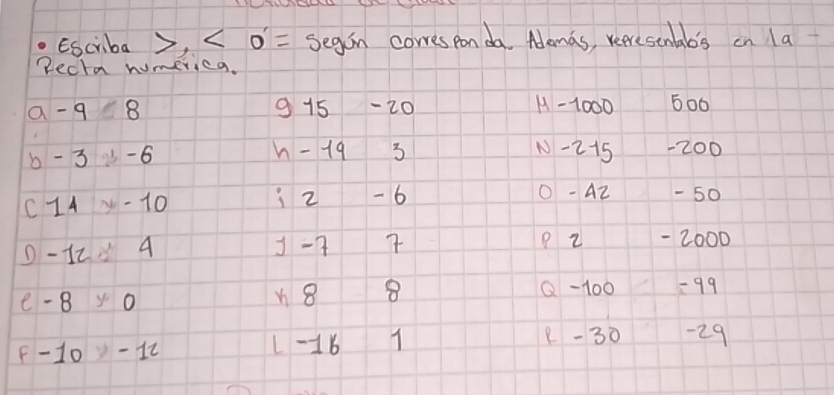 • Escriba >, < o = Según corresponda. Además, represéntalo's en la
Recta numérica.
a -9 < 8 g 15 -20 M -1000 500
b -3 > -6 h -19 3 N -215 -200
C 14 -10 i 2 -6 O -42 -50
D -12 4 J -7 7 P 2 -2000
e -8 0 K 8 8 Q -100 -99
F -10 > -12 L -16 1 R -30 -29